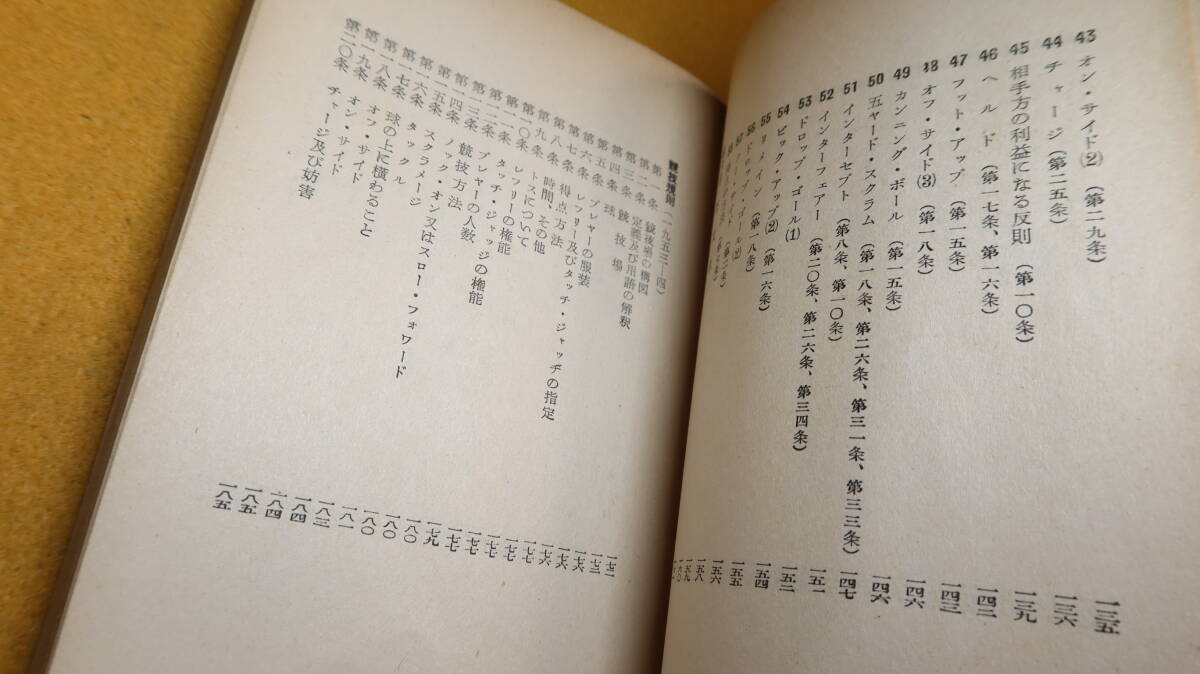 43 オン・サイド(2) (第二九条) 一三五
44 チャージ (第二五条) 一三六
45 相手方の利益になる反則 (第一〇条) 一三九
46 ヘルド (第一七条、第一六条) 一四二
47 フット・アップ (第一五条) 一四三
48 オフ・サイド(3) (第一八条) 一四六
49 カンニング・ボール (第一五条) 一四六
50 五ヤード・スクラム (第一八条、第二六条、第三一条、第三三条) 一四七
51 インターセプト (第八条、第一〇条) 一五一
52 インターフェアー (第二〇条、第二六条、第三四条) 一五二
53 ドロップ・ゴール(1) 一五四
54 ピック・アップ(2) (第一六条) 一五五
55 リメイン (第一八条) 一五六
56 ドロップ・ゴール(2) 一五八
競技規則 (一九五三―四) 一七三
第一条 競技場の構図 一七三
第二条 定義及び用語の解釈
第三条 競技場 一七六
第四条 球 一七六
第五条 プレヤーの服装
第六条 レフリー及びタッチ・ジャッヂの指定
第七条 得点方法
第八条 時間、その他
第九条 トスについて
第一〇条 レフリーの権能
第一一条 タッチ・ジャッジの権能
第一二条 プレヤーの人数
第一三条 競技方法
第一四条 ノック・オン又はスロー・フォワード
第一五条 スクラメージ
第一六条 タックル 一八三
第一七条 球の上に横わること 一八四
第一八条 オフ・サイド 一八四
第一九条 オン・サイド 一八五
第二〇条 チャージ及び妨害 一八五